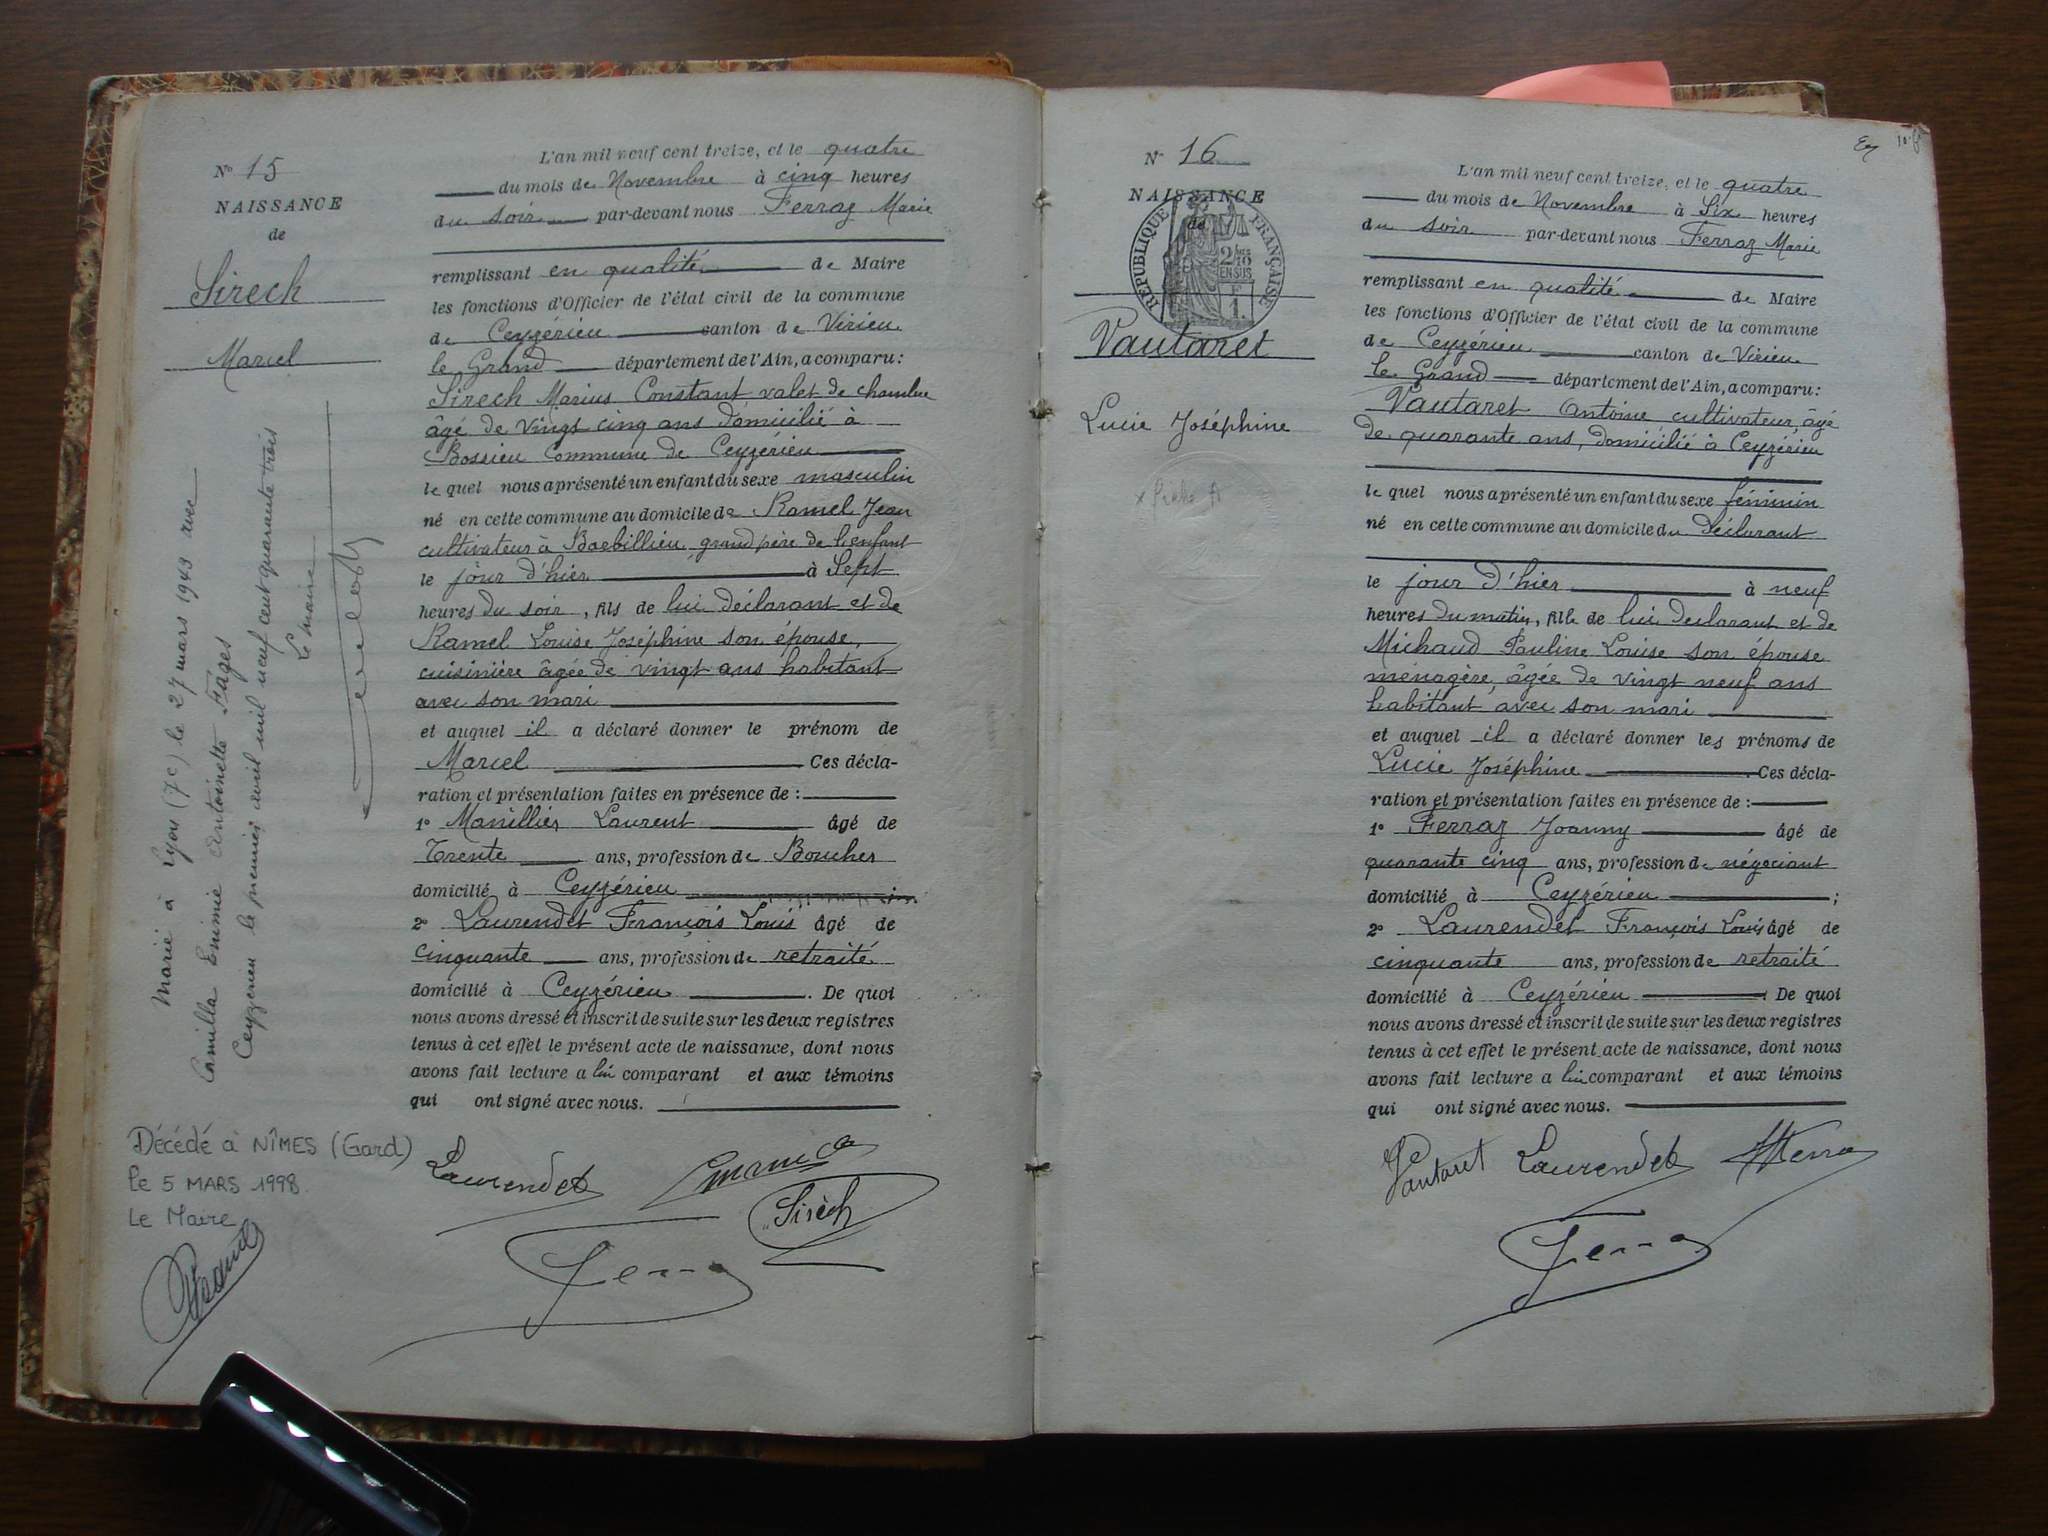 N° 15
NAISSANCE
de
Sirech
Marcel
Marié à Lyon (7e) le 27 mars 1943 avec
Camilla Enimie Antoinette Fages
Ceyzerieu le premier avril mil neuf cent quarante trois
Le maire
Décédé à NÎMES (Gard)
le 5 MARS 1998.
Le Maire
L'an mil neuf cent treize, et le quatre
du mois de Novembre à cinq heures
du soir par-devant nous Ferraz Marie
remplissant en qualité de Maire
les fonctions d'Officier de l'état civil de la commune
de Ceyzérieu canton de Virieu
le Grand département de l'Ain, a comparu :
Sirech Marius Constant valet de chambre
âgé de vingt cinq ans domicilié à
Bossieu Commune de Ceyzérieu
le quel nous a présenté un enfant du sexe masculin
né en cette commune au domicile de Ramel Jean
cultivateur à Barbillieu grand père de l'enfant
le jour d'hier à Sept
heures du soir, fils de lui déclarant et de
Ramel Louise Joséphine son épouse
cuisinière âgée de vingt ans habitant
avec son mari
et auquel il a déclaré donner le prénom de
Marcel Ces décla-
ration et présentation faites en présence de :
1° Manillier Laurent âgé de
Trente ans, profession de Boucher
domicilié à Ceyzérieu ;
2° Laurendet François Louis âgé de
cinquante ans, profession de retraité
domicilié à Ceyzérieu . De quoi
nous avons dressé et inscrit de suite sur les deux registres
tenus à cet effet le présent acte de naissance, dont nous
avons fait lecture a lui comparant et aux témoins
qui ont signé avec nous.
Laurendet
Sirech
N° 16
NAISSANCE
de
RÉPUBLIQUE FRANÇAISE
2/10
EN SUS
Vautaret
Lucie Joséphine
L'an mil neuf cent treize, et le quatre
du mois de Novembre à Six heures
du soir par-devant nous Ferraz Marie
remplissant en qualité de Maire
les fonctions d'Officier de l'état civil de la commune
de Ceyzérieu canton de Virieu
le Grand département de l'Ain, a comparu :
Vautaret Antoine cultivateur, âgé
de quarante ans, domicilié à Ceyzérieu
le quel nous a présenté un enfant du sexe féminin
né en cette commune au domicile du Déclarant
le jour d'hier à neuf
heures du matin, fille de lui déclarant et de
Michaud Pauline Louise son épouse
ménagère, âgée de vingt neuf ans
habitant avec son mari
et auquel il a déclaré donner les prénoms de
Lucie Joséphine Ces décla-
ration et présentation faites en présence de :
1° Ferraz Joanny âgé de
quarante cinq ans, profession de négociant
domicilié à Ceyzérieu ;
2° Laurendet François Louis âgé de
cinquante ans, profession de retraité
domicilié à Ceyzérieu . De quoi
nous avons dressé et inscrit de suite sur les deux registres
tenus à cet effet le présent acte de naissance, dont nous
avons fait lecture a lui comparant et aux témoins
qui ont signé avec nous.
Vautaret Laurendet